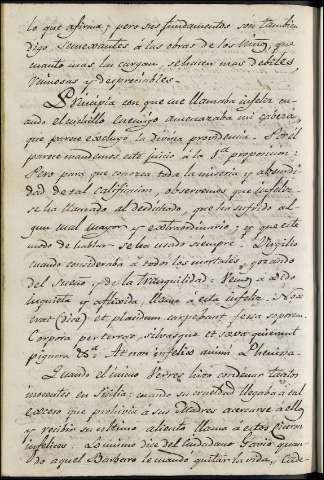 lo que afirma; pero sus fundamentos son tambien
digo semexantes á las obras de los Niños, que
cuanto mas las cargan, se hacen mas debiles,
ruinosas y despreciables.
Principia con que me llamaba infeliz cu-
ando el cuchillo enemigo amenazaba mi cabeza,
que parece excluyo la divina providencia. Por él
parece mandemos este juicio á la 1ª proposicion:
Pero para que conozca toda la miseria y absur-
didad de tal calificacion, observemos que infeliz
se ha llamado al desdichado, que ha sufrido al
gun mal mayor y extraordinario; y que este
modo de hablar se ha usado siempre. Virgilio
cuando consideraba á todos los mortales gozando
del sueño y de la tranquilidad: Veinos á Dido
inquieta y afligida, llamo á esta infeliz. Nox
erat (dice) et placidum carpebant fessa soporem
Corpora per terras, silvaeque et saeva quierant
pignora &ª. At non infelix animi Phenissa.
Cuando el mismo Verres hizo condenar tantos
inocentes en Sicilia; cuando su crueldad llegaba á tal
exceso que prohibia á sus Madres acercarse á ellos
y recibir su ultimo aliento llama á estos Ciceron
infelices. Lo mismo dice del ciudadano Gavio quan-
do aquel Barbaro le mandó quitar la vida, y Cade-